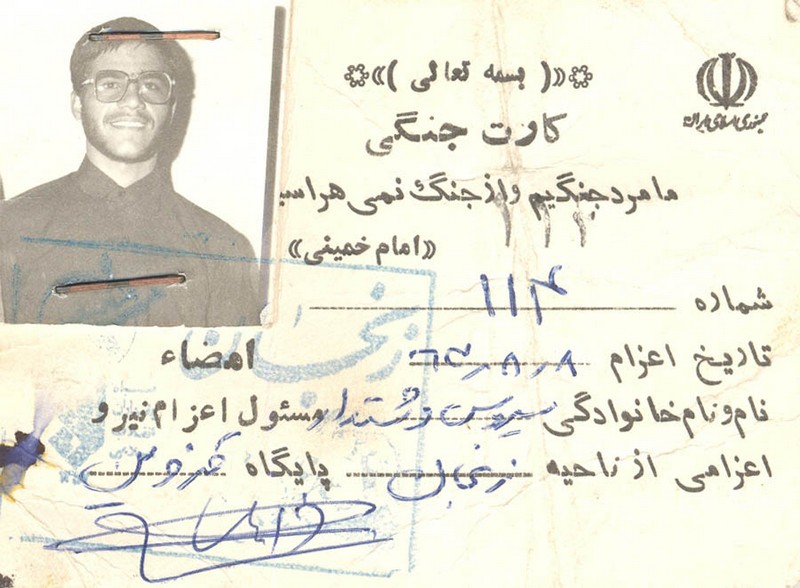 «( بسمه تعالی )»
جمهوری اسلامی ایران
کارت جنگی
ما مرد جنگیم و از جنگ نمی هراسیم
«امام خمینی»
شماره ۱۱۴
تاریخ اعزام ۶۴٫۸٫۸ امضاء
نام و نام خانوادگی سیروس مسئول اعزام نیرو
اعزامی از ناحیه زنجان پایگاه
زنجان